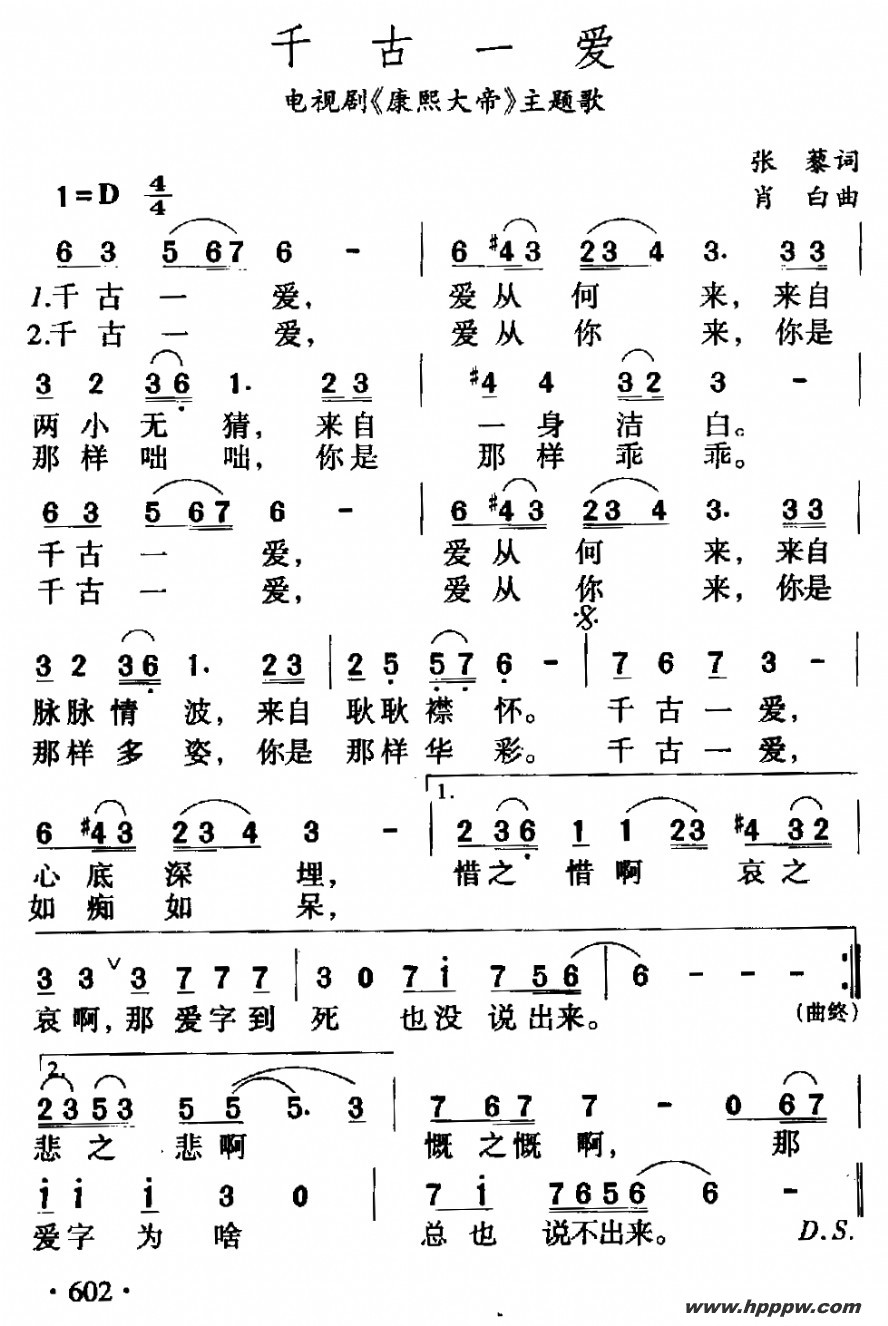 千古一爱
电视剧《康熙大帝》主题歌
张藜词
1=D 4/4
肖白曲
6 3 5 67 6 - | 6 #43 23 4 3. 33 |
1.千古一爱, 爱从何来, 来自
2.千古一爱, 爱从你来, 你是
3 2 36 1. 23 | #4 4 32 3 - |
两小无猜, 来自一身洁白。
那样咄咄, 你是那样乖乖。
6 3 5 67 6 - | 6 #43 23 4 3. 33 |
千古一爱, 爱从何来, 来自
千古一爱, 爱从你来, 你是
3 2 36 1. 23 | 2 5 57 6 - | 7 6 7 3 - |
脉脉情波, 来自耿耿襟怀。千古一爱,
那样多姿, 你是那样华彩。千古一爱,
1.
6 #43 23 4 3 - | 2 36 1 1 23 #4 32 |
心底深埋, 惜之惜啊哀之
如痴如呆,
3 3 ∨ 3 7 7 7 | 3 0 7 1 7 56 | 6 - - - :||
哀啊, 那爱字到死也没说出来。 (曲终)
2.
23 53 5 5 5. 3 | 7 67 7 - 0 67 |
悲之悲啊慨之慨啊, 那
1 1 1 3 0 | 7 1 7656 6 - ||
爱字为啥总也说不出来。 D.S.
·602·
www.hpppw.com